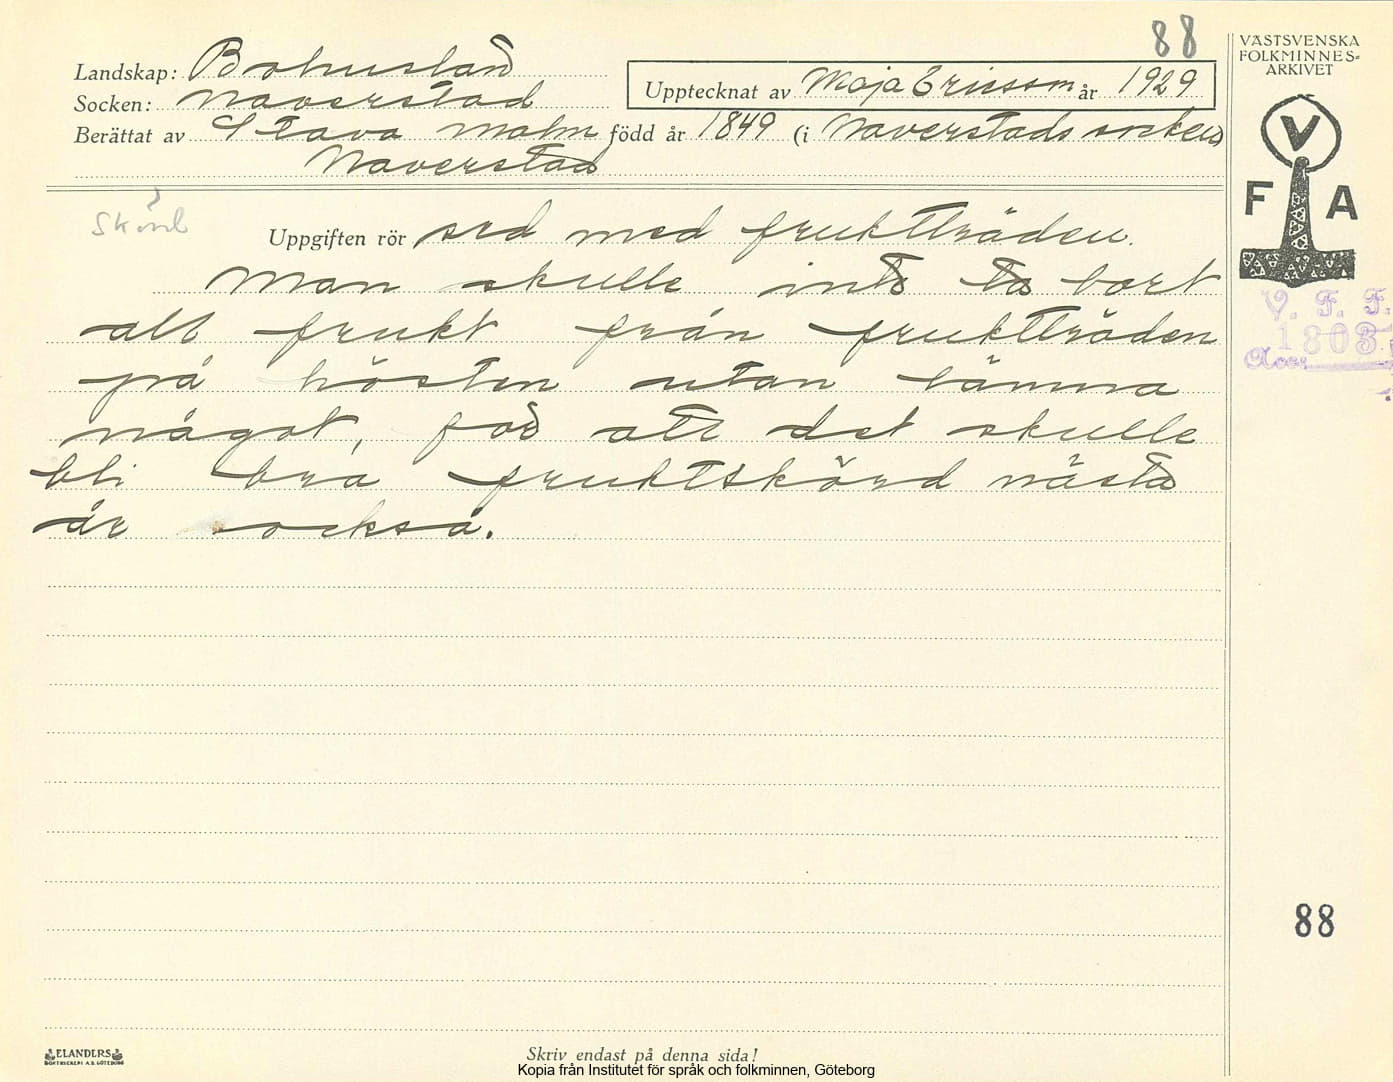 88
Landskap: Bohuslän
Socken: Naverstad
Upptecknat av Maja Ericsson år 1929
Berättat av Stava Malm född år 1849 (i Naverstads socken)
Naverstad
VÄSTSVENSKA
FOLKMINNES-
ARKIVET
V
F A
V. F. F.
1803
Acc.
Skörd
Uppgiften rör sed med fruktträden.
Man skulle inte ta bort
all frukt från fruktträden
på hösten utan lämna
något, för att det skulle
bli bra fruktskörd nästa
år också.
88
ELANDERS
BOKTRYCKERI A.B. GÖTEBORG
Skriv endast på denna sida!
Kopia från Institutet för språk och folkminnen, Göteborg